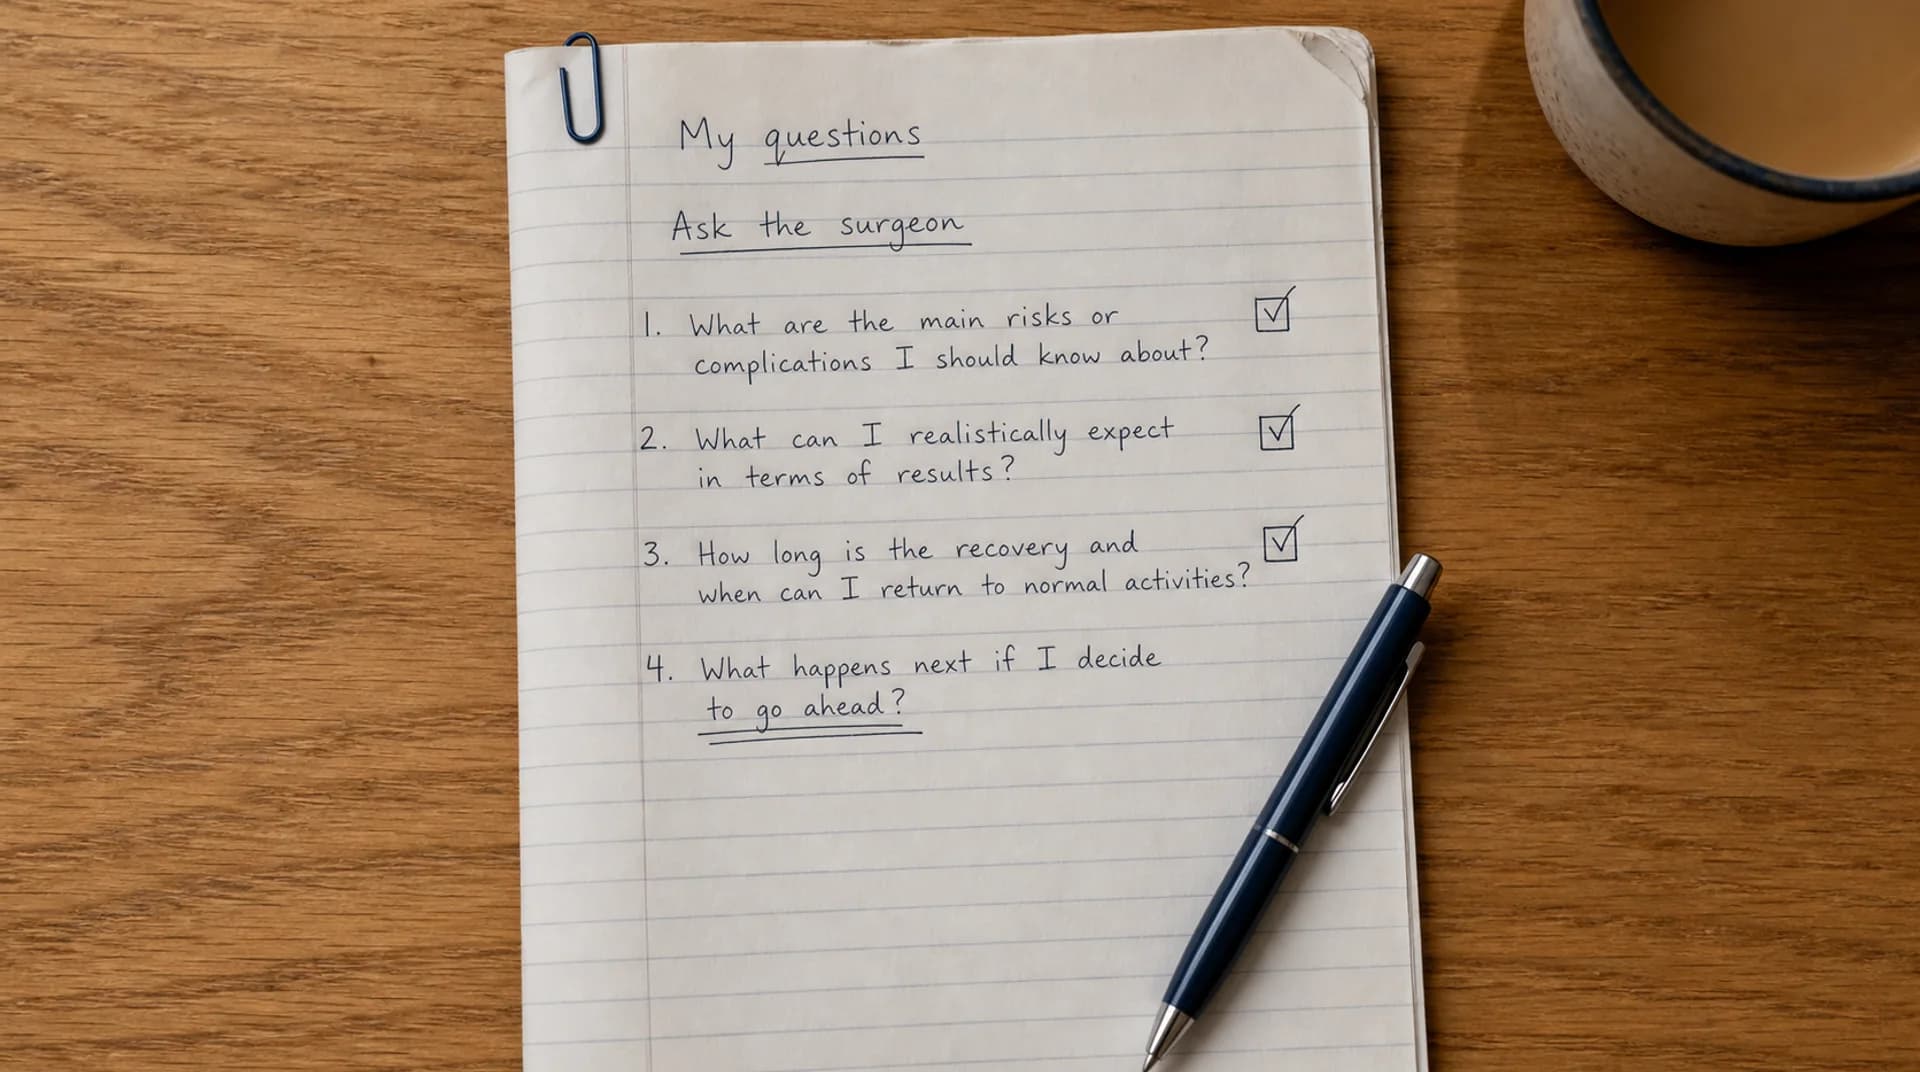 My questions
Ask the surgeon
1. What are the main risks or
complications I should know about?
2. What can I realistically expect
in terms of results?
3. How long is the recovery and
when can I return to normal activities?
4. What happens next if I decide
to go ahead?